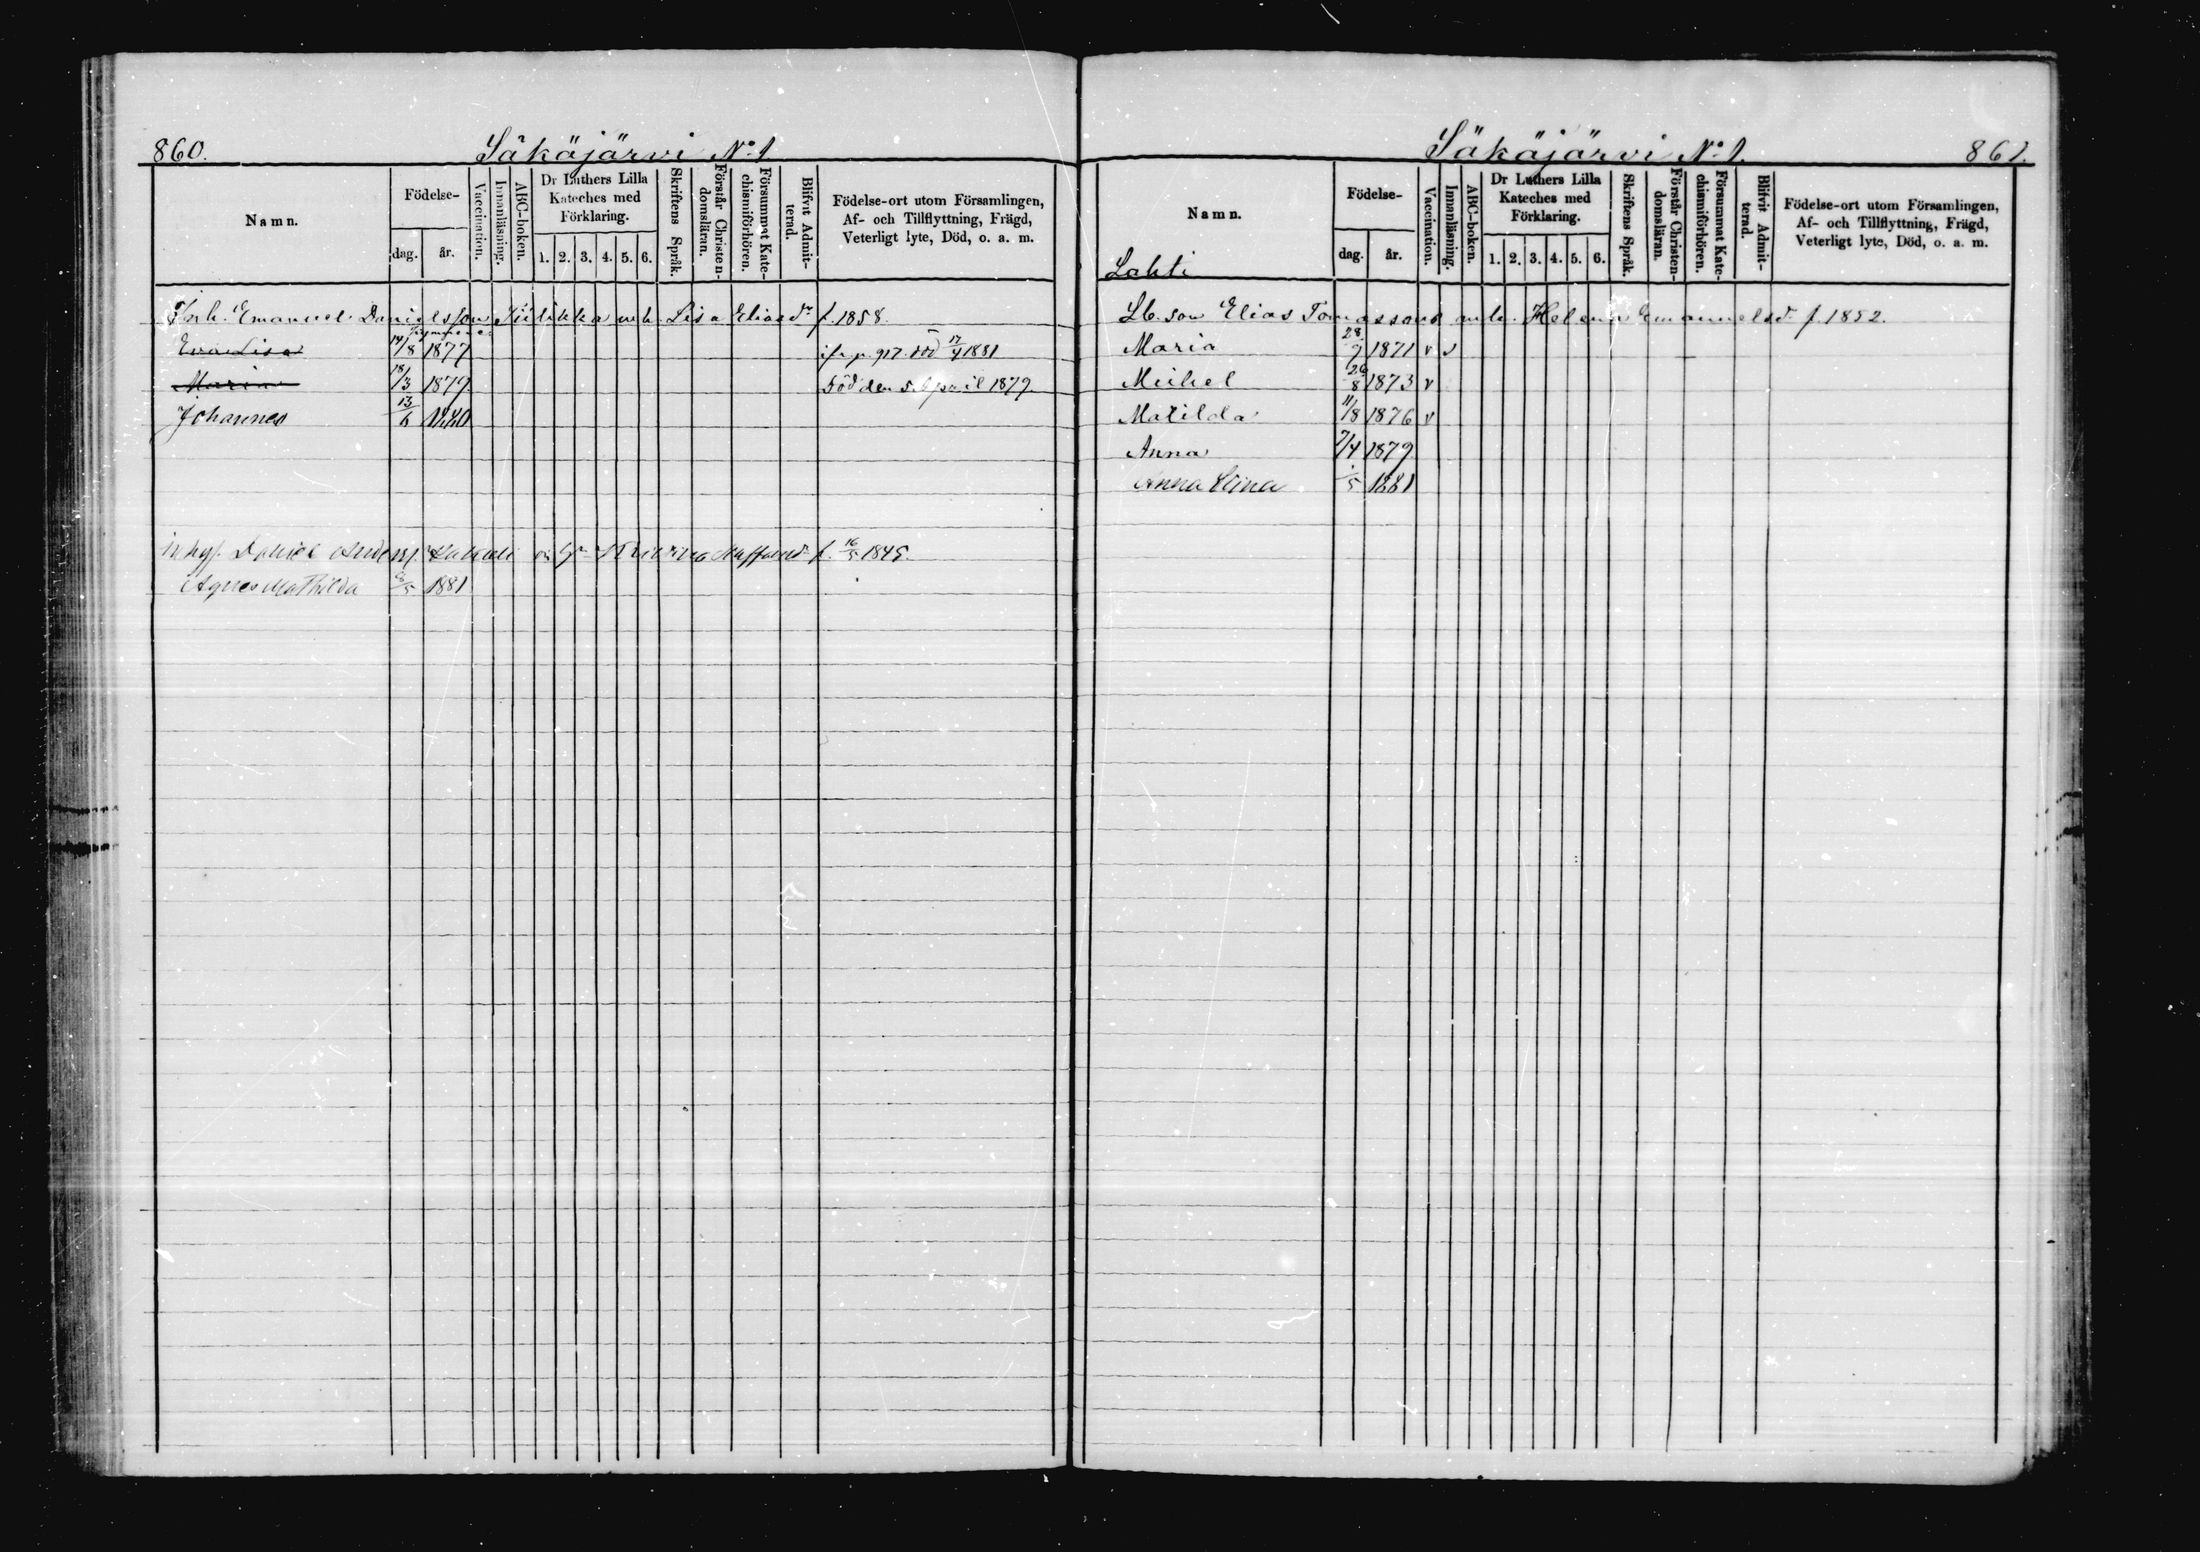 860.
Säkäjärvi No 1
Namn.
Födelse-
dag.
år.
Vaccination.
Innanläsning.
ABC-boken.
Dr Luthers Lilla
Kateches med
Förklaring.
1. 2. 3. 4. 5. 6.
Skriftens Språk.
Förstår Christen-
domsläran.
Försummat Kate-
chismiförhören.
Blifvit Admit-
terad.
Födelse-ort utom Församlingen,
Af- och Tillflyttning, Frägd,
Veterligt lyte, Död, o. a. m.
Inh. Emanuel Danielsson m.h. Lisa Eliasdr f. 1858.
Eva Lisa 14/8 1877 ifr. p. 917. död 17/4 1881
Maria 18/3 1879 Död den 5 April 1879.
Johannes 13/6 1880
inhys. Daniel f. 16/5 1845.
Agnes Mathilda 8/5 1881
Säkäjärvi No 1.
861.
Namn.
Födelse-
dag.
år.
Vaccination.
Innanläsning.
ABC-boken.
Dr Luthers Lilla
Kateches med
Förklaring.
1. 2. 3. 4. 5. 6.
Skriftens Språk.
Förstår Christen-
domsläran.
Försummat Kate-
chismiförhören.
Blifvit Admit-
terad.
Födelse-ort utom Församlingen,
Af- och Tillflyttning, Frägd,
Veterligt lyte, Död, o. a. m.
Lahti
Lb. son Elias Tomassons m.h. Helena Emanuelsdr f. 1852.
Maria 28/9 1871 v v
Mickel 26/8 1873 v
Matilda 11/8 1876 v
Anna 7/4 1879
Anna Stina 1/5 1881